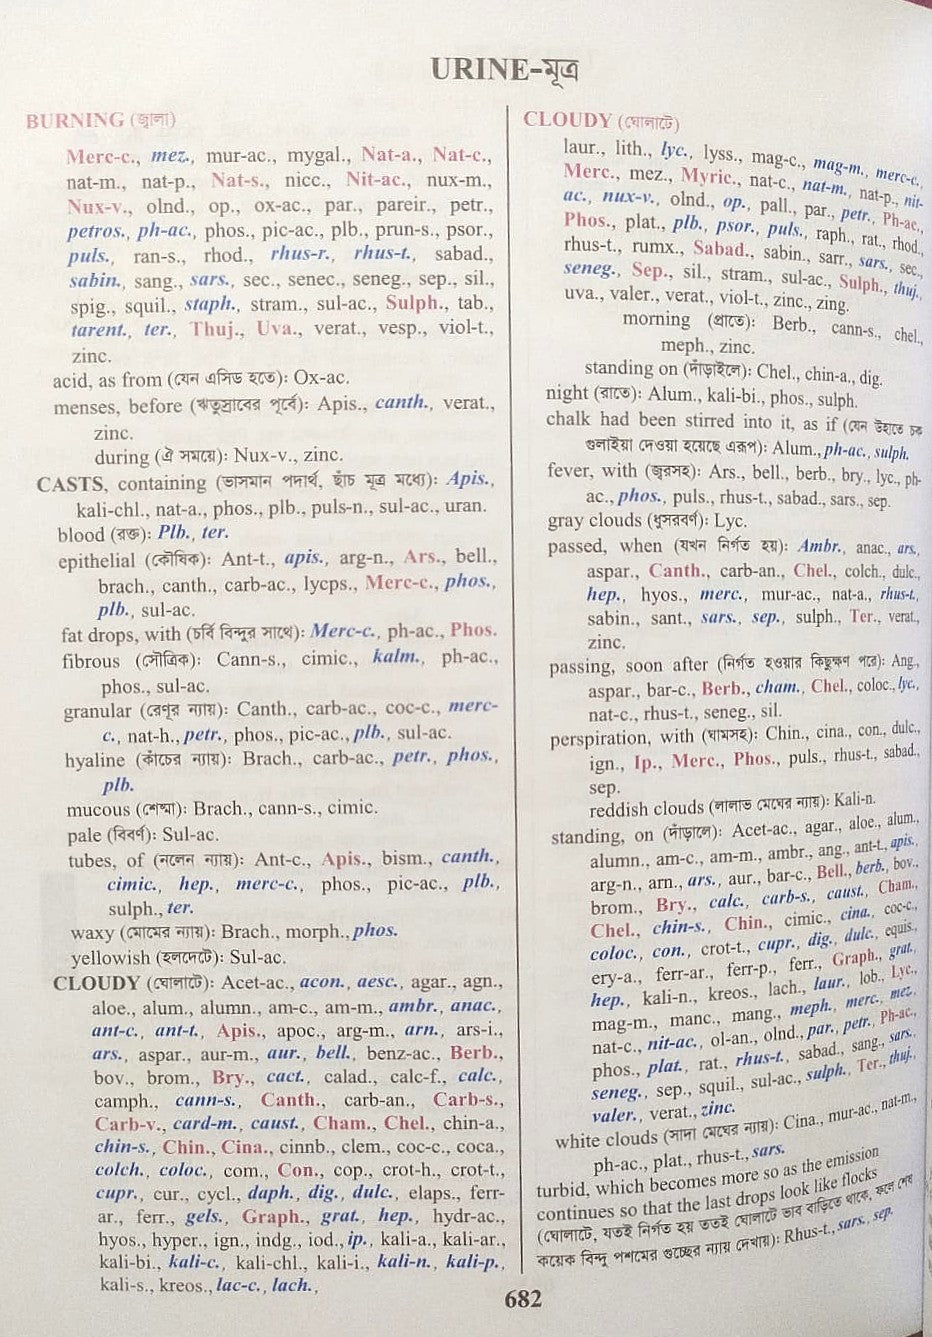 URINE-মূত্র
BURNING (জ্বালা)
Merc-c., mez., mur-ac., mygal., Nat-a., Nat-c.,
nat-m., nat-p., Nat-s., nicc., Nit-ac., nux-m.,
Nux-v., olnd., op., ox-ac., par., pareir., petr.,
petros., ph-ac., phos., pic-ac., plb., prun-s., psor.,
puls., ran-s., rhod., rhus-r., rhus-t., sabad.,
sabin., sang., sars., sec., senec., seneg., sep., sil.,
spig., squil., staph., stram., sul-ac., Sulph., tab.,
tarent., ter., Thuj., Uva., verat., vesp., viol-t.,
zinc.
acid, as from (যেন এসিড হতে): Ox-ac.
menses, before (ঋতুস্রাবের পূর্বে): Apis., canth., verat.,
zinc.
during (ঐ সময়ে): Nux-v., zinc.
CASTS, containing (ভাসমান পদার্থ, ছাঁচ মূত্র মধ্যে): Apis.,
kali-chl., nat-a., phos., plb., puls-n., sul-ac., uran.
blood (রক্ত): Plb., ter.
epithelial (কৌষিক): Ant-t., apis., arg-n., Ars., bell.,
brach., canth., carb-ac., lycps., Merc-c., phos.,
plb., sul-ac.
fat drops, with (চর্বি বিন্দুর সাথে): Merc-c., ph-ac., Phos.
fibrous (সৌত্রিক): Cann-s., cimic., kalm., ph-ac.,
phos., sul-ac.
granular (রেণুর ন্যায়): Canth., carb-ac., coc-c., merc-
c., nat-h., petr., phos., pic-ac., plb., sul-ac.
hyaline (কাঁচের ন্যায়): Brach., carb-ac., petr., phos.,
plb.
mucous (শেষ্মা): Brach., cann-s., cimic.
pale (বিবর্ণ): Sul-ac.
tubes, of (নলেন ন্যায়): Ant-c., Apis., bism., canth.,
cimic., hep., merc-c., phos., pic-ac., plb.,
sulph., ter.
waxy (মোমের ন্যায়): Brach., morph., phos.
yellowish (হলদেটে): Sul-ac.
CLOUDY (ঘোলাটে): Acet-ac., acon., aesc., agar., agn.,
aloe., alum., alumn., am-c., am-m., ambr., anac.,
ant-c., ant-t., Apis., apoc., arg-m., arn., ars-i.,
ars., aspar., aur-m., aur., bell., benz-ac., Berb.,
bov., brom., Bry., cact., calad., calc-f., calc.,
camph., cann-s., Canth., carb-an., Carb-s.,
Carb-v., card-m., caust., Cham., Chel., chin-a.,
chin-s., Chin., Cina., cinnb., clem., coc-c., coca.,
colch., coloc., com., Con., cop., crot-h., crot-t.,
cupr., cur., cycl., daph., dig., dulc., elaps., ferr-
ar., ferr., gels., Graph., grat., hep., hydr-ac.,
hyos., hyper., ign., indg., iod., ip., kali-a., kali-ar.,
kali-bi., kali-c., kali-chl., kali-i., kali-n., kali-p.,
kali-s., kreos., lac-c., lach.,
CLOUDY (ঘোলাটে)
laur., lith., lyc., lyss., mag-c., mag-m., merc-c.,
Merc., mez., Myric., nat-c., nat-m., nat-p., nit-
ac., nux-v., olnd., op., pall., par., petr., Ph-ac.,
Phos., plat., plb., psor., puls., raph., rat., rhod.,
rhus-t., rumx., Sabad., sabin., sarr., sars., sec.,
seneg., Sep., sil., stram., sul-ac., Sulph., thuj.,
uva., valer., verat., viol-t., zinc., zing.
morning (প্রাতে): Berb., cann-s., chel.,
meph., zinc.
standing on (দাঁড়াইলে): Chel., chin-a., dig.
night (রাতে): Alum., kali-bi., phos., sulph.
chalk had been stirred into it, as if (যেন উহাতে চক
গুলাইয়া দেওয়া হয়েছে এরূপ): Alum., ph-ac., sulph.
fever, with (জ্বরসহ): Ars., bell., berb., bry., lyc., ph-
ac., phos., puls., rhus-t., sabad., sars., sep.
gray clouds (ধুসরবর্ণ): Lyc.
passed, when (যখন নির্গত হয়): Ambr., anac., ars.,
aspar., Canth., carb-an., Chel., colch., dulc.,
hep., hyos., merc., mur-ac., nat-a., rhus-t.,
sabin., sant., sars., sep., sulph., Ter., verat.,
zinc.
passing, soon after (নির্গত হওয়ার কিছুক্ষণ পরে): Ang.,
aspar., bar-c., Berb., cham., Chel., coloc., lyc.,
nat-c., rhus-t., seneg., sil.
perspiration, with (ঘামসহ): Chin., cina., con., dulc.,
ign., Ip., Merc., Phos., puls., rhus-t., sabad.,
sep.
reddish clouds (লালাভ মেঘের ন্যায়): Kali-n.
standing, on (দাঁড়ালে): Acet-ac., agar., aloe., alum.,
alumn., am-c., am-m., ambr., ang., ant-t., apis.,
arg-n., arn., ars., aur., bar-c., Bell., berb., bov.,
brom., Bry., calc., carb-s., caust., Cham.,
Chel., chin-s., Chin., cimic., cina., coc-c.,
coloc., con., crot-t., cupr., dig., dulc., equis.,
ery-a., ferr-ar., ferr-p., ferr., Graph., grat.,
hep., kali-n., kreos., lach., laur., lob., Lyc.,
mag-m., manc., mang., meph., merc., mez.,
nat-c., nit-ac., ol-an., olnd., par., petr., Ph-ac.,
phos., plat., rat., rhus-t., sabad., sang., sars.,
seneg., sep., squil., sul-ac., sulph., Ter., thuj.,
valer., verat., zinc.
white clouds (সাদা মেঘের ন্যায়): Cina., mur-ac., nat-m.,
ph-ac., plat., rhus-t., sars.
turbid, which becomes more so as the emission
continues so that the last drops look like flocks
(ঘোলাটে, যতই নির্গত হয় ততই ঘোলাটে ভাব বাড়িতে থাকে, ফলে শেষ
কয়েক বিন্দু পশমের গুচ্ছের ন্যায় দেখায়): Rhus-t., sars., sep.
682